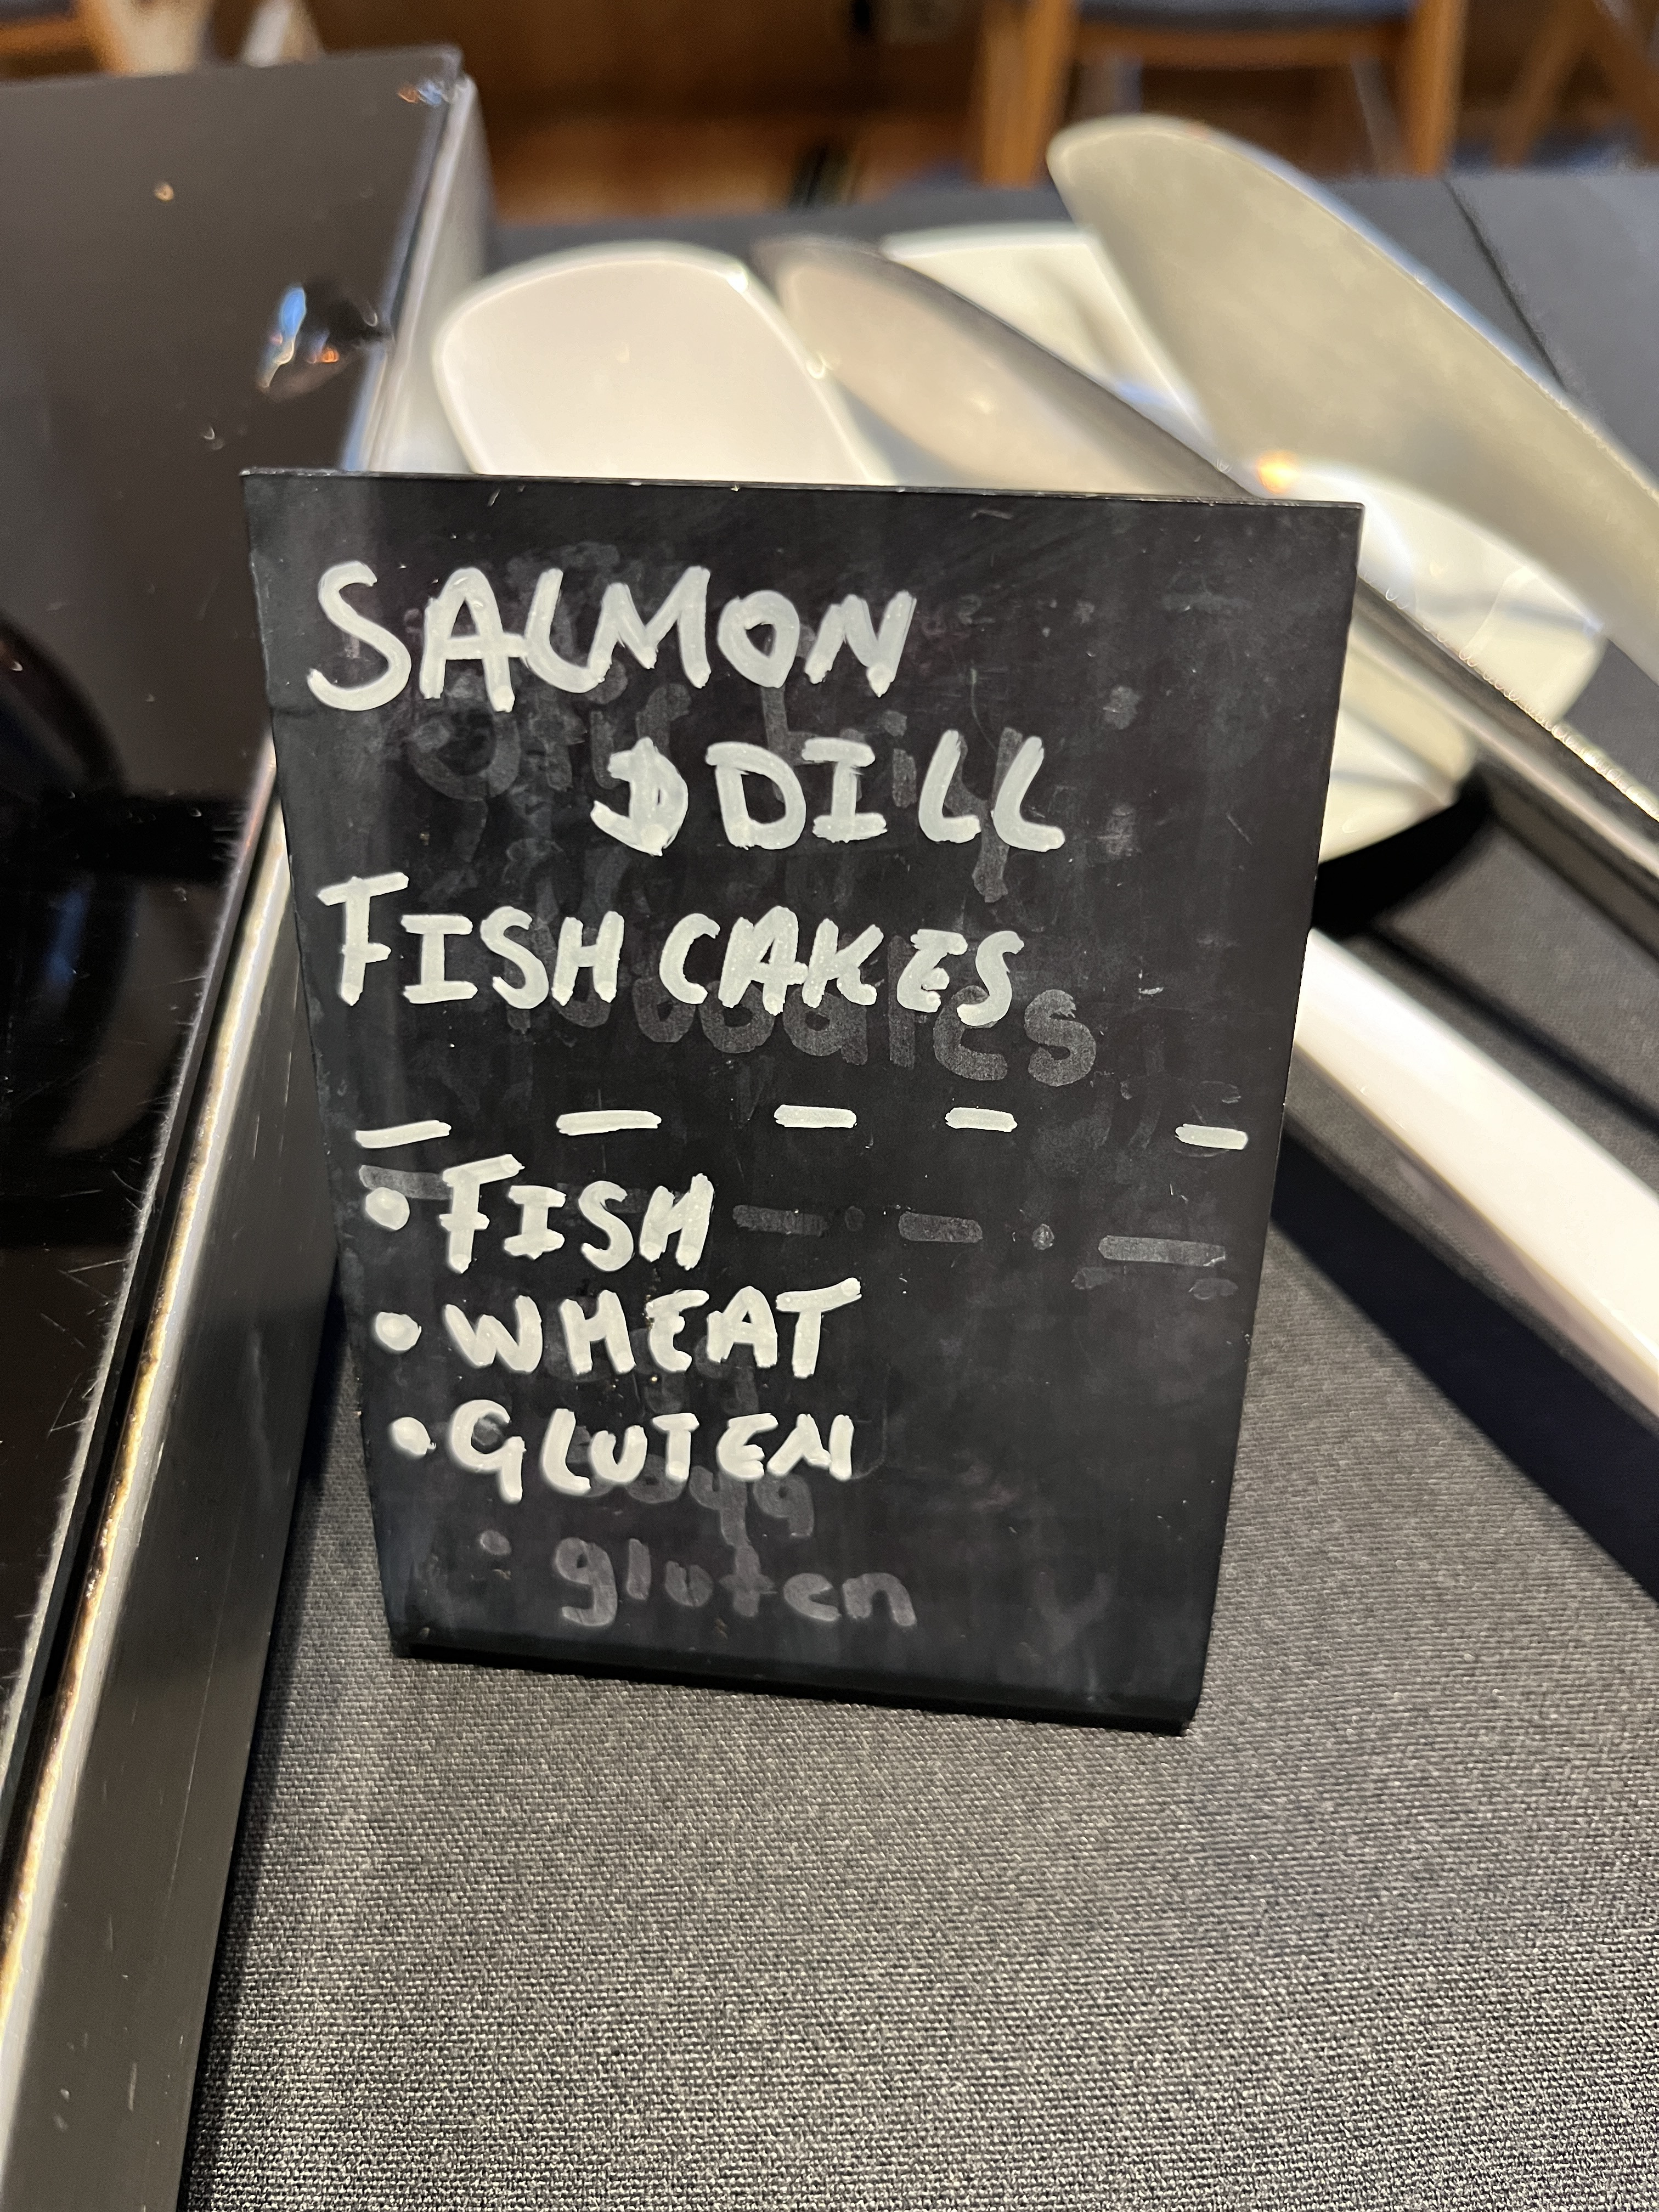 SALMON
& DILL
FISH CAKES
• FISH
• WHEAT
• GLUTEN
• gluten